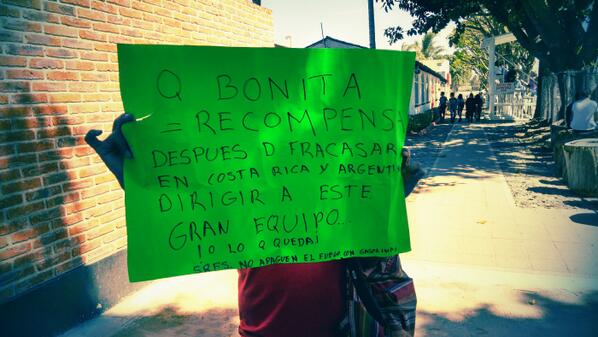 Q BONITA
= RECOMPENSA
DESPUES D FRACASAR
EN COSTA RICA Y ARGENTI
DIRIGIR A ESTE
GRAN EQUIPO...
¡O LO Q QUEDA!
SRES. NO APAGUEN EL FUEGO CON GASOLINA!